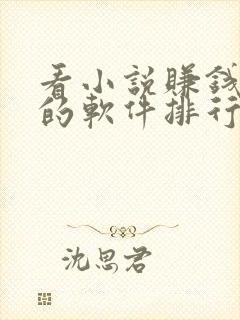 看小说賺錢
的軟件排行
沈思君